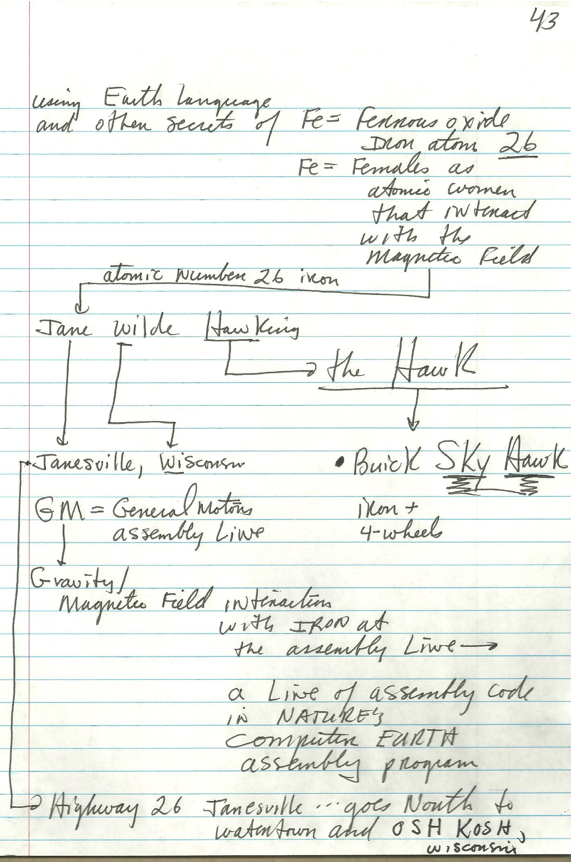 43
using Earth language
and other secrets of Fe = Ferrous oxide
Iron atom 26
Fe = Females as
atomic women
that interact
with the
Magnetic Field
atomic Number 26 iron
Jane Wilde Hawking
the Hawk
Janesville, Wisconsin
• Buick Sky Hawk
GM = General Motors
assembly Line
iron +
4-wheels
Gravity/
Magnetic Field interaction
with IRON at
the assembly Line →
a Line of assembly code
in NATURE's
computer EARTH
assembly program
Highway 26 Janesville ... goes North to
watertown and OSH KOSH,
wisconsin